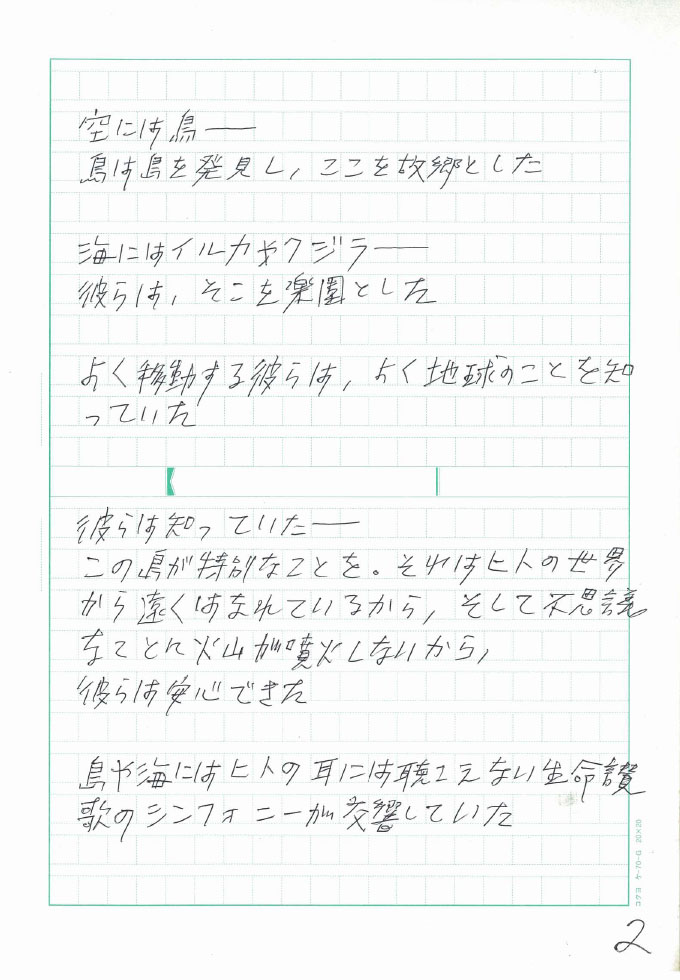 空には鳥――
鳥は島を発見し，ここを故郷とした
海にはイルカやクジラ――
彼らは，そこを楽園とした
よく移動する彼らは，よく地球のことを知
っていた
彼らは知っていた――
この島が特別なことを。それはヒトの世界
から遠くはなれているから，そして不思議
なことに火山が噴火しないから，
彼らは安心できた
島や海にはヒトの耳には聴こえない生命讃
歌のシンフォニーが交響していた
コクヨ ケ-70 20×20
2